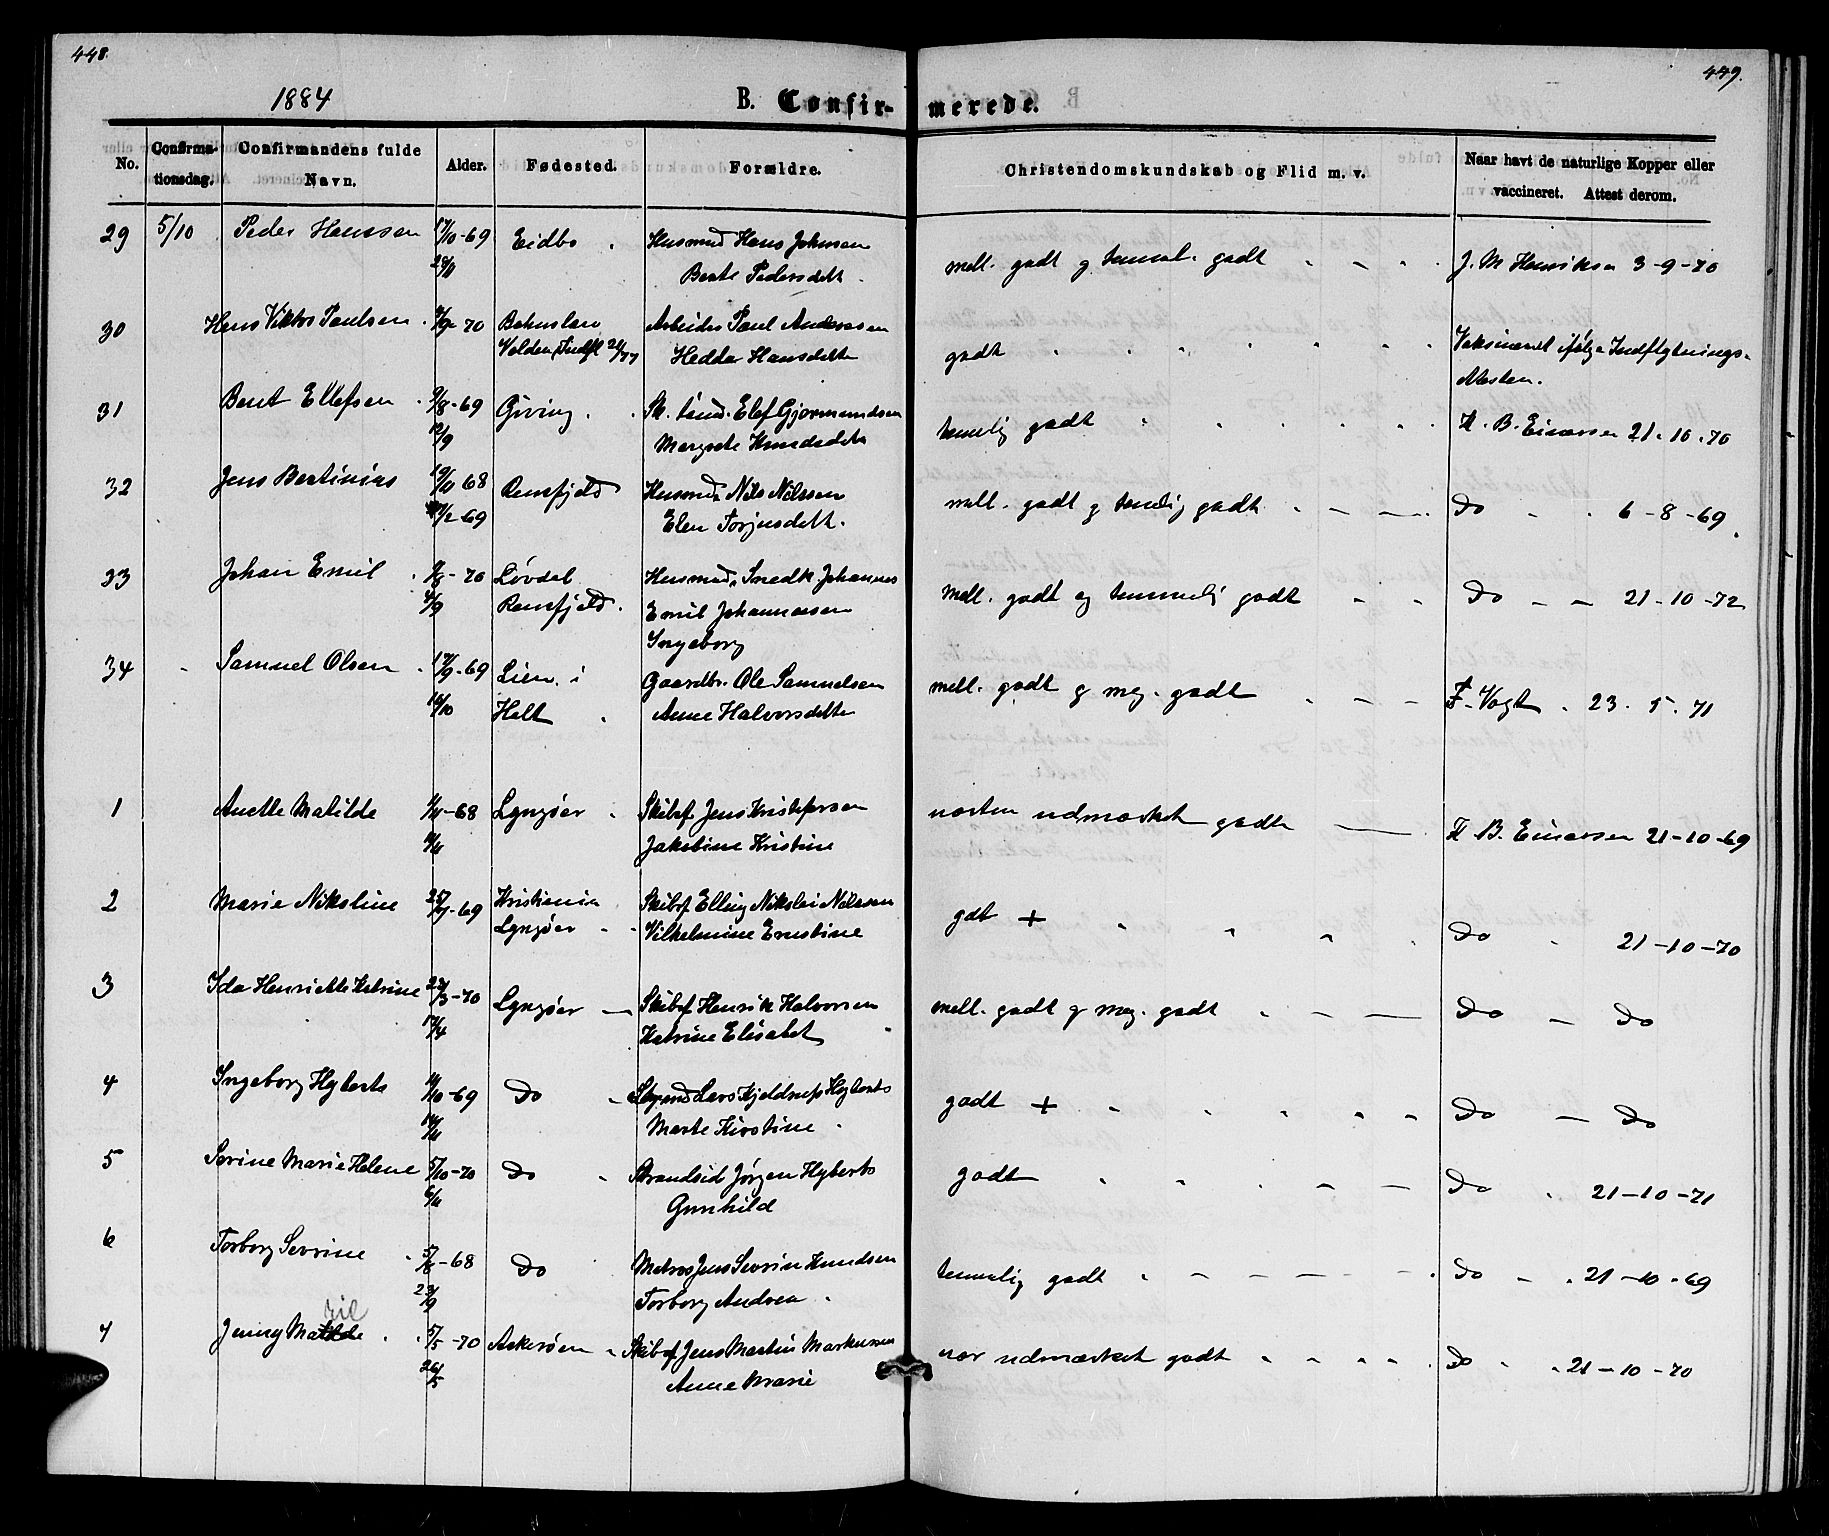 448.
449.
1884
B. Confirmerede.
No.
Confirma-
tionsdag.
Confirmandens fulde
Navn.
Alder.
Fødested.
Forældre.
Christendomskundskab og Flid m. v.
Naar havt de naturlige Kopper eller
vaccineret. Attest derom.
29 5/10 Peder Hanssen 17/10-69 Eidbo Husmd Hans Johnsen
Berte Pedersdatt
mell. godt g temml. godt J. M Henriksen 3-9-70
30 Hans Viktor Paulsen -70 Bohuslen Arbeider Paul Anderssen
Hedda Hansdatter
godt Vaksineret ifølge Indflytnings-
Attesten.
31 Bent Ellefsen 9/8-69 Gjeving Elef Gjermundsen
12/9 Margrete Knudsdatt
temmelig godt H. B. Einersen 21-10-70
32 Jens Bertinius 68 Rensfjeld Husmd. Nils Nilssen
/2-69 Elen Torjusdatt.
mell. godt g temlig godt Do 6-8-69
33 Johan Emil -70 Løvdal Husmd, Snedk Johannes
4/9 Rensfjeld. Emil Johannessen
Ingeborg
mell. godt og temmelig godt Do 21-10-72
34 Samuel Olsen 17/9-69 Lien i Gaardbr. Ole Samuelsen
16/10 Holt Anne Halvorsdatter
mell. godt g meg. godt Vogt 23-5-71
1 Anette Matilde -68 Lyngøer Skibsf Jens Kristofersen
Jakobine Kristine
næsten udmærket godt H B. Einersen 21-10-69
2 Marie Nikoline -69 Kristiania Skibsf Elling Nikolai Nilssen
Lyngøer Vilhelmine Ernstine
godt + Do 21-10-70
3 Ida Henriette Katrine /3-70 Lyngøer Skibsf Henrik Halvorsen
/4 Katrine Elisabet
mell. godt g meg. godt Do Do
4 Ingeborg Hyberts /10-69 Do Lars Kjeldsen Hyberts
Marte Kirstine
godt + Do Do
5 Sorine Marie Helene 5/10-70 Do Strandsid Jørgen Hyberts
6/11 Gunhild
godt Do 21-10-71
6 Torborg Severine 5/8-68 Do Matros Jens Severin Knudsen
23/9 Torborg Andrea
temmelig godt Do 21-10-69
7 Jenny Matilde 5/5-70 Askerøen Skibsf Jens Martin Markussen
26/5 Anne Marie
nær udmærket godt Do 21-10-70